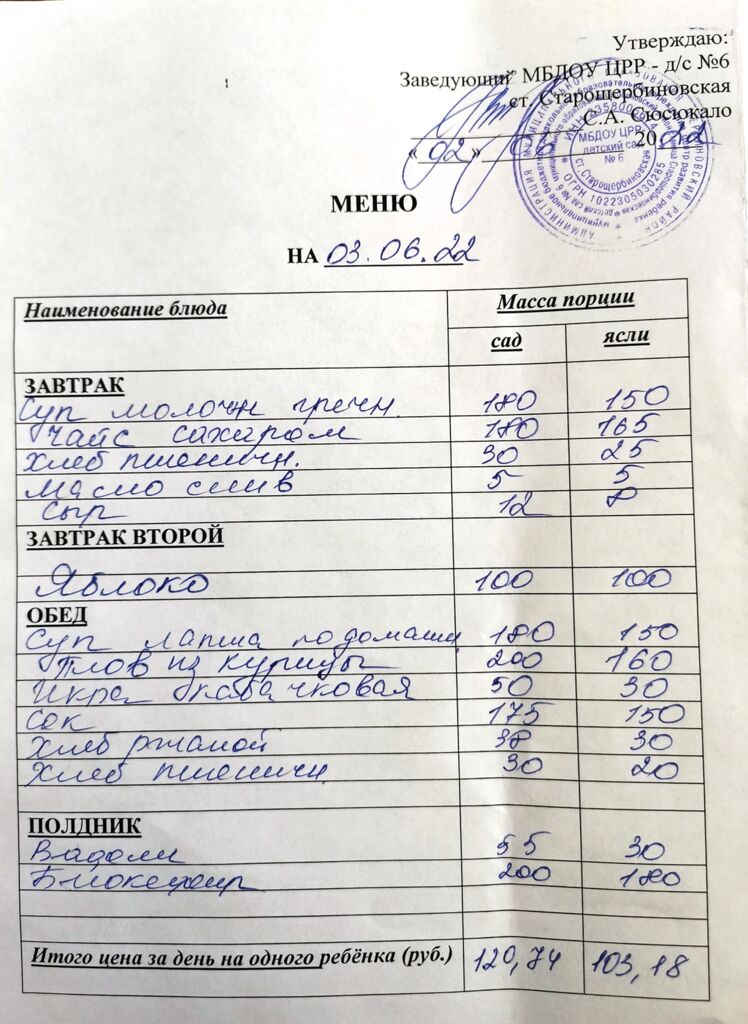 Утверждаю:
Заведующий МБДОУ ЦРР - д/с №6
ст. Старощербиновская
С.А. Сюсюкало
«02» 06 2022
МБДОУ ЦРР
детский сад
№ 6
ст. Старощербиновская
ОГРН 1022305030285
МЕНЮ
НА 03.06.22
Наименование блюда Масса порции
сад ясли
ЗАВТРАК
Суп молочн гречн. 180 150
Чай с сахаром 180 165
Хлеб пшеничн. 30 25
Масло слив 5 5
Сыр 12 8
ЗАВТРАК ВТОРОЙ
Яблоко 100 100
ОБЕД
Суп лапша по домашн 180 150
Плов из курицы 200 160
Икра кабачковая 50 30
Сок 175 150
Хлеб ржаной 38 30
Хлеб пшеничн 30 20
ПОЛДНИК
Вафли 55 30
Биокефир 200 180
Итого цена за день на одного ребёнка (руб.) 120,74 103,18